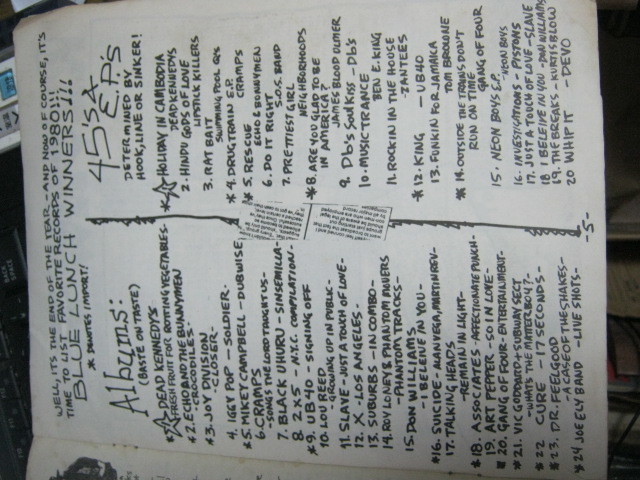 WELL, IT'S THE END OF THE YEAR - AND NOW OF COURSE, IT'S
TIME TO LIST FAVORITE RECORDS OF 1980!!!
BLUE LUNCH WINNERS!!!
* DENOTES IMPORT!
Albums:
(BASTE ON TASTE)
1. DEAD KENNEDYS
-FRESH FRUIT FOR ROTTING VEGETABLES-
*2. ECHO AND THE BUNNYMEN
-CROCODILES-
*3. JOY DIVISION
-CLOSER-
4. IGGY POP - SOLDIER-
*5. MIKEY CAMPBELL - DUBWISE
6. CRAMPS
-SONGS THE LORD TAUGHT US-
7. BLACK UHURU - SINSEMILLA-
8. 2X5 - N.Y.C. COMPILATION-
*9. UB40 - SIGNING OFF
10. LOU REED
-GROWING UP IN PUBLIC-
11. SLAVE - JUST A TOUCH OF LOVE-
12. X - LOS ANGELES-
13. SUBURBS - IN COMBO-
14. ROY LONEY & PHANTOM MOVERS
-PHANTOM TRACKS-
15. DON WILLIAMS
-I BELEIVE IN YOU-
*16. SUICIDE - ALAN VEGA, MARTIN REV-
17. TALKING HEADS
-REMAIN IN LIGHT-
*18. ASSOCIATES - AFFECTIONATE PUNCH-
19. ART PEPPER - SO IN LOVE-
*20. GANG OF FOUR - ENTERTAINMENT-
*21. VIC GODDARD + SUBWAY SECT
-WHAT'S THE MATTER BOY?-
*22 CURE - 17 SECONDS-
*23. DR. FEELGOOD
-A CASE OF THE SHAKES-
*24 JOE ELY BAND - LIVE SHOTS-
45'S &
E.P.'S
DETERMINED BY
HOOK, LINE OR SINKER!
1. HOLIDAY IN CAMBODIA
DEAD KENNEDYS
2. HINDU GODS OF LOVE
LIPSTICK KILLERS
3. RAT BAIT
SWIMMING POOL Q'S
*4. DRUG TRAIN E.P.
CRAMPS
*5. RESCUE
ECHO & BUNNYMEN
6. DO IT RIGHT
S.O.S. BAND
7. PRETTIEST GIRL
NEIGHBORHOODS
*8. ARE YOU GLAD TO BE
IN AMERICA?
JAMES BLOOD ULMER
9. DB'S SOUL KISS - DB'S
10. MUSIC TRANCE
BEN E. KING
11. ROCKIN IN THE HOUSE
-ZANTEES
*12. KING - UB40
13. FUNKIN FOR JAMAICA
TOM BROWNE
*14. OUTSIDE THE TRAINS DON'T
RUN ON TIME
GANG OF FOUR
15. NEON BOYS E.P.
-NEON BOYS
16. INVESTIGATIONS - PISTONS
17. JUST A TOUCH OF LOVE - SLAVE
18 I BELEIVE IN YOU - DON WILLIAMS
19. THE BREAKS - KURTIS BLOW
20 WHIP IT - DEVO
-5-